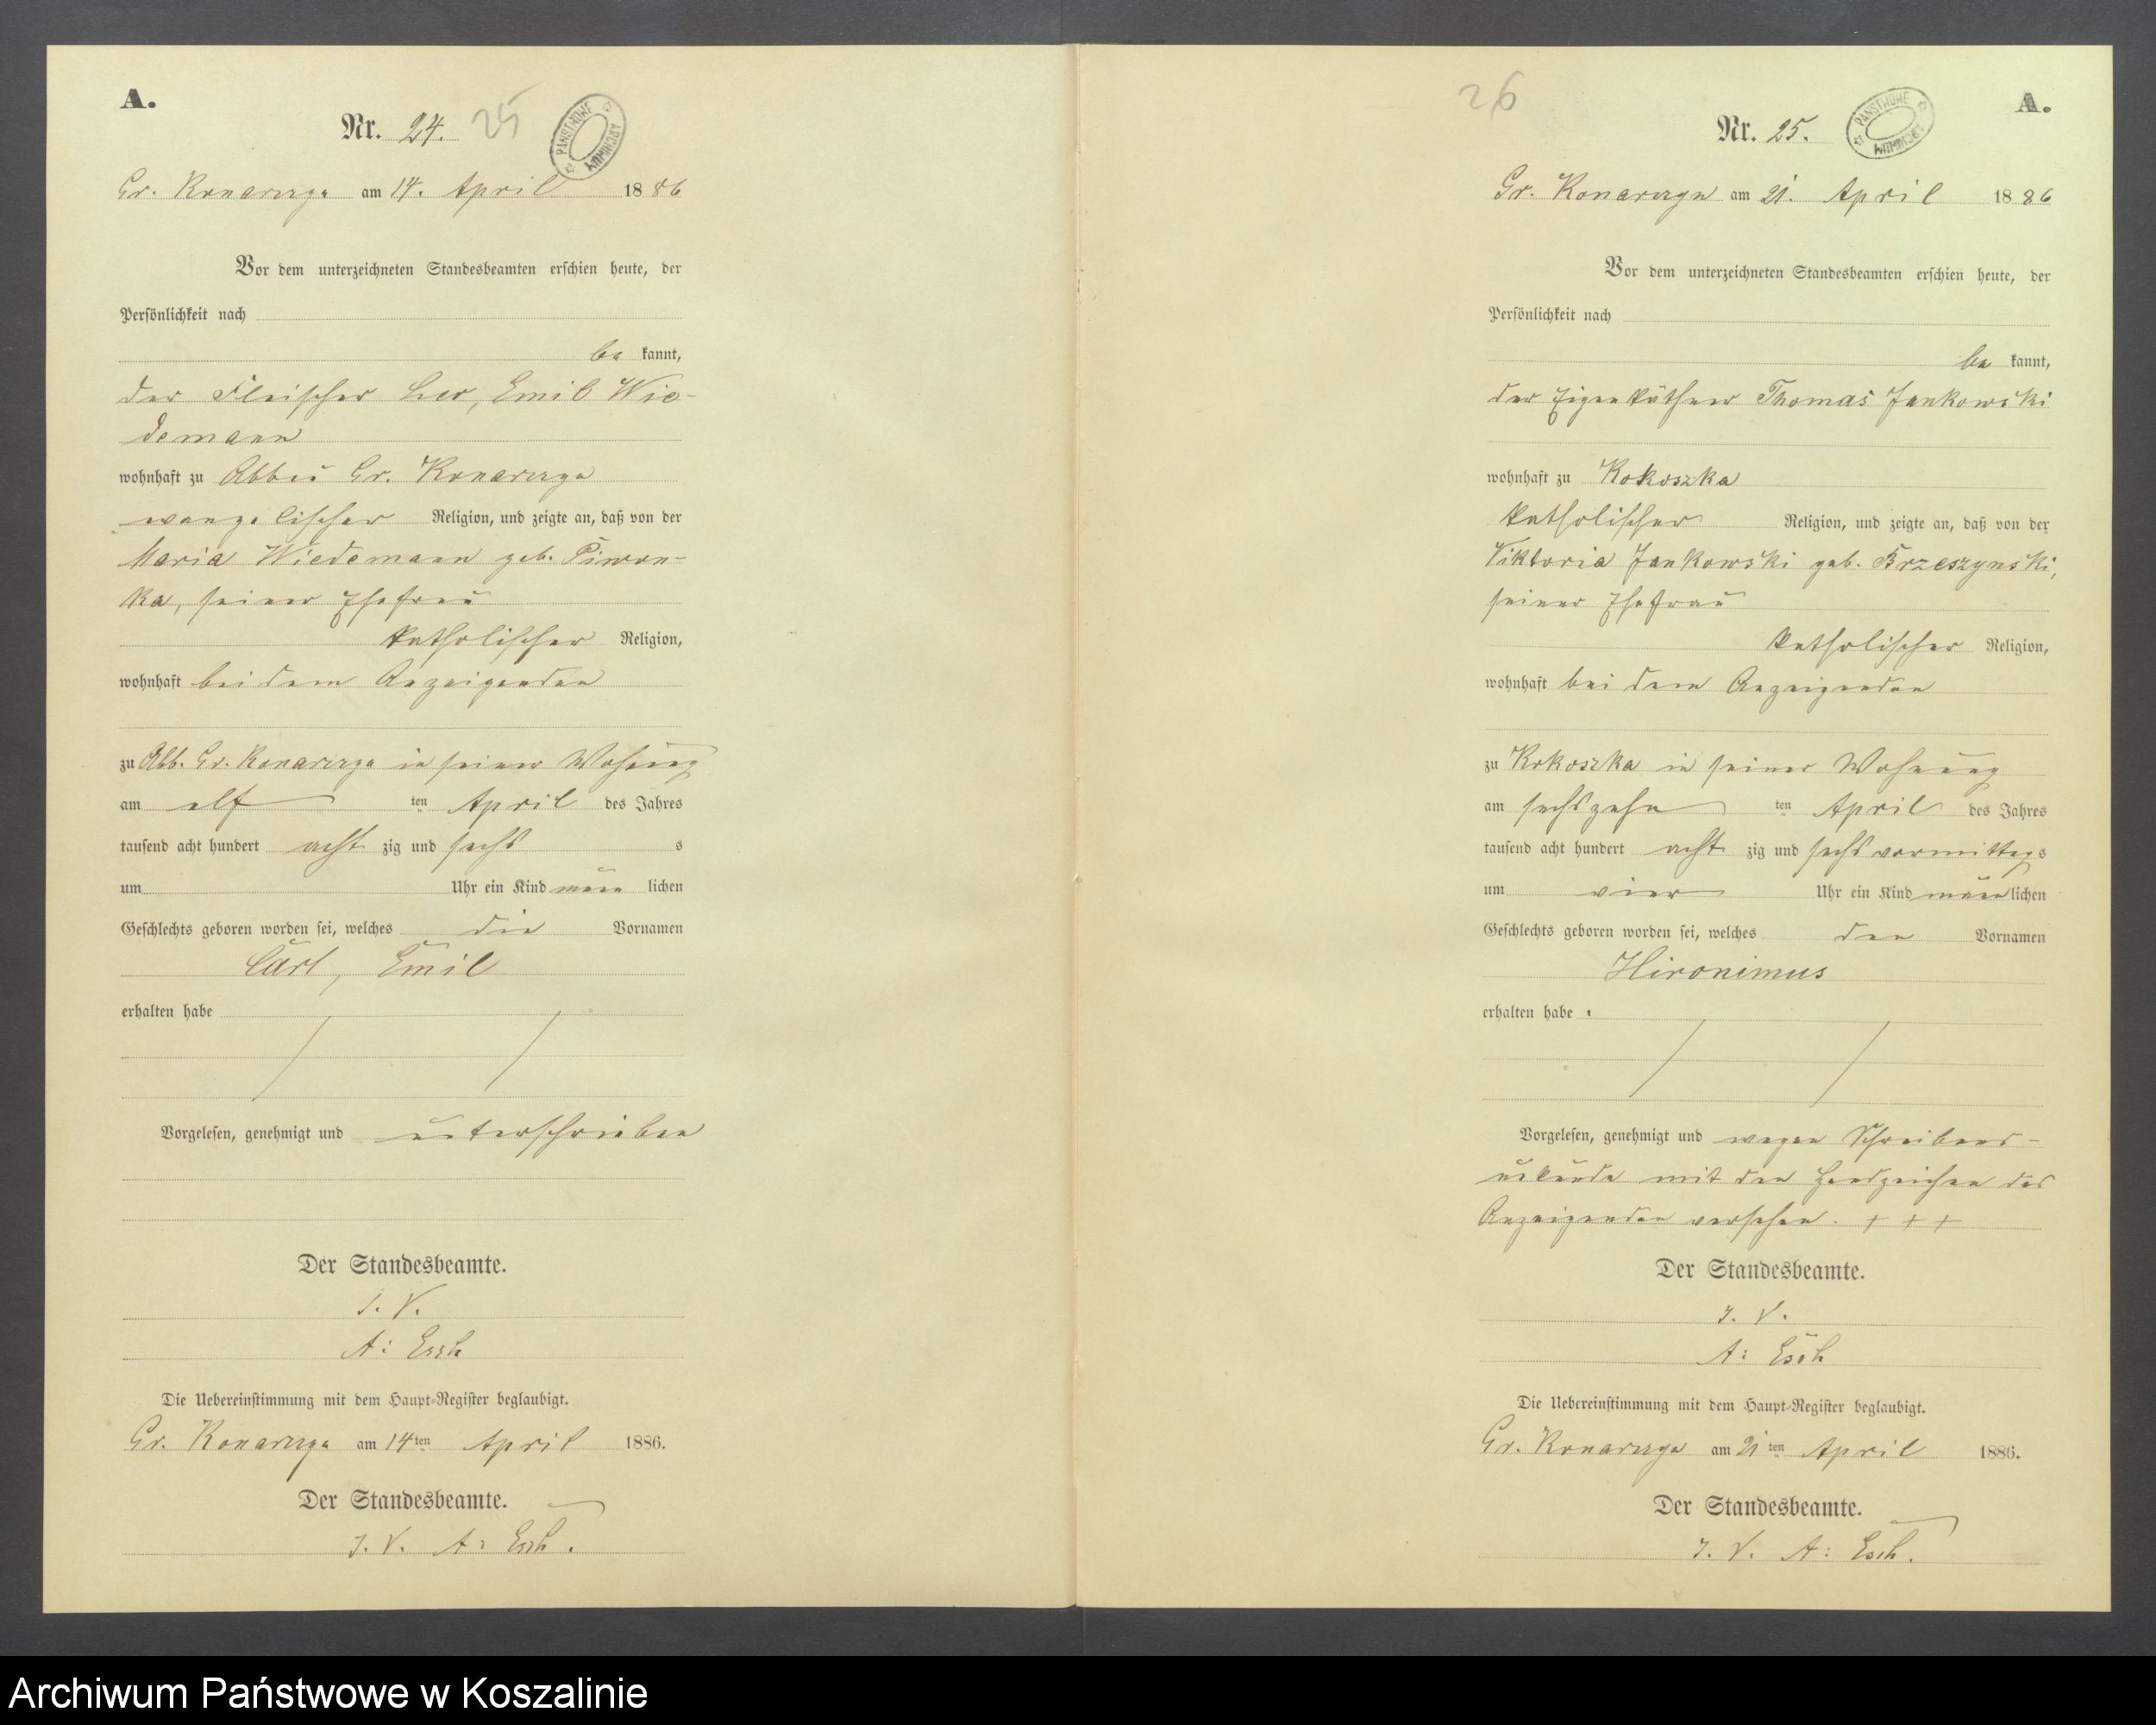 A.
Nr. 24.
25
PAŃSTWOWE
ARCHIWUM
Gr. Konarczyn am 14. April 1886
Vor dem unterzeichneten Standesbeamten erschien heute, der
Persönlichkeit nach
be kannt,
der Fleischer Leo, Emil Wie-
demann
wohnhaft zu Abbau Gr. Konarczyn
evangelischer Religion, und zeigte an, daß von der
Maria Wiedemann geb. Piwon-
ka, seiner Ehefrau
katholischer Religion,
wohnhaft bei dem Anzeigenden
zu Abb. Gr. Konarczyn in seiner Wohnung
am elf ten April des Jahres
tausend acht hundert acht zig und sechs s
um Uhr ein Kind männ lichen
Geschlechts geboren worden sei, welches die Vornamen
Carl, Emil
erhalten habe
Vorgelesen, genehmigt und unterschrieben
Der Standesbeamte.
I. V.
A: Esch
Die Uebereinstimmung mit dem Haupt-Register beglaubigt.
Gr. Konarczyn am 14ten April 1886.
Der Standesbeamte.
I. V. A: Esch.
26
A.
Nr. 25.
PAŃSTWOWE
ARCHIWUM
Gr. Konarczyn am 21. April 1886
Vor dem unterzeichneten Standesbeamten erschien heute, der
Persönlichkeit nach
be kannt,
der Eigenkäthner Thomas Jankowski
wohnhaft zu Kokoszka
katholischer Religion, und zeigte an, daß von der
Viktoria Jankowski geb. Brzeszynski,
seiner Ehefrau
katholischer Religion,
wohnhaft bei dem Anzeigenden
zu Kokoszka in seiner Wohnung
am sechszehn ten April des Jahres
tausend acht hundert acht zig und sechs vormittags
um vier Uhr ein Kind männlichen
Geschlechts geboren worden sei, welches den Vornamen
Hironimus
erhalten habe.
Vorgelesen, genehmigt und wegen Schreibens-
unkunde mit den Handzeichen des
Anzeigenden versehen. + + +
Der Standesbeamte.
I. V.
A: Esch
Die Uebereinstimmung mit dem Haupt-Register beglaubigt.
Gr. Konarczyn am 21ten April 1886.
Der Standesbeamte.
I. V. A: Esch.
Archiwum Państwowe w Koszalinie